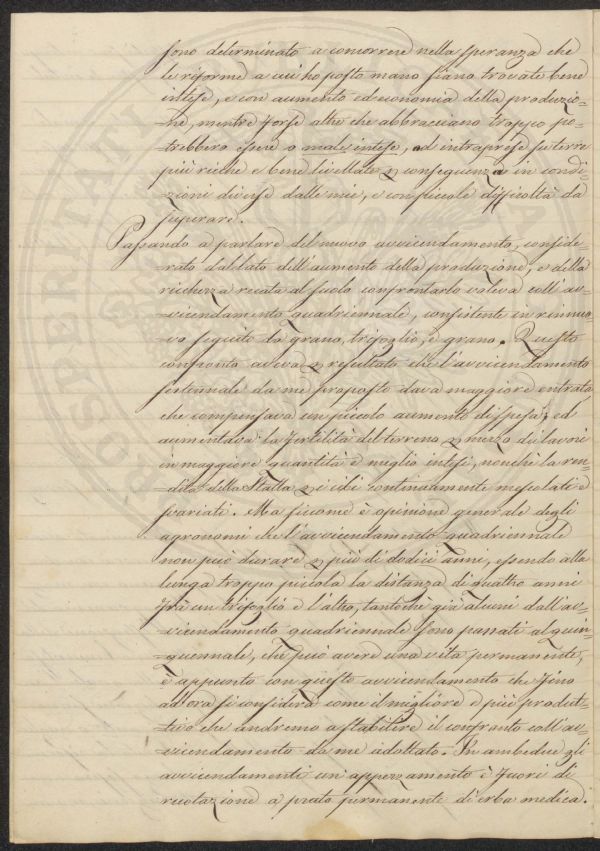 sono determinato a concorrere nella speranza che
le riforme a cui ho posto mano siano trovate bene
intese, e con aumento ed economia della produzio=
=ne, mentre forse altre che abbracciano troppo po=
=trebbero essere o male intese, od intraprese su terre
più riche e bene livellate e conseguenza in condi=
=zioni diverse dalle mie, e con piccole difficoltà da
superare.
Passando a parlare del nuovo avvicendamento, conside=
=rato dal lato dell'aumento della produzione, e della
ricchezza recata al suolo confrontarlo voleva coll'av=
=vicendamento quadriennale, consistente in rinnuo=
=vo seguito da grano, trifoglio, e grano. Questo
confronto aveva p resultato che l'avvicendamento
settennale da me proposto dava maggiore entrata
che compensava un piccolo aumento di spesa, ed
aumentava la fertilità del terreno p mezzo di lavori
in maggiore quantità e meglio intesi, nonchè la ren=
=dita della Stalla p i cibi continuamente mescolati e
svariati. Ma siccome è opinione generale degli
agronomi che l'avvicendamento quadriennale
non può durare p più di dodici anni, essendo alla
lunga troppo piccola la distanza di quattro anni
frà un trifoglio e l'altro, tantochè già alcuni dall'av=
=vicendamento quadriennale sono passati al quin=
=quennale, che può avere una vita permanente,
è appunto con questo avvicendamento che fino
ad'ora si considera come il migliore e più produt=
=tivo che andremo a stabilire il confronto coll'av=
=vicendamento da me adottato. In ambedue gli
avvicendamenti un'appezzamento è fuori di
ruotazione a prato permanente di erba medica.
PROSPERITAT